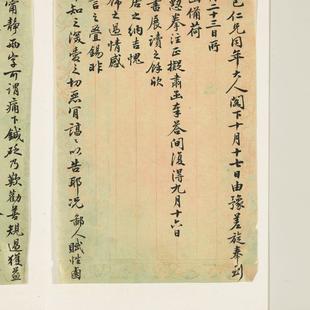 仁兄同年大人閣下十月十七日由豫差旋奉到
二十三日所
備荷
拳注正擬肅函奉答間復得九月十六日
書展讀之餘欣
之納吉愧
佛之過情感
言之疊錫非
知之深愛之切惡肎諄諄以告耶况鄙人賦性鹵
甯靜兩字可謂痛下鍼砭乃歎勸善規過獲益